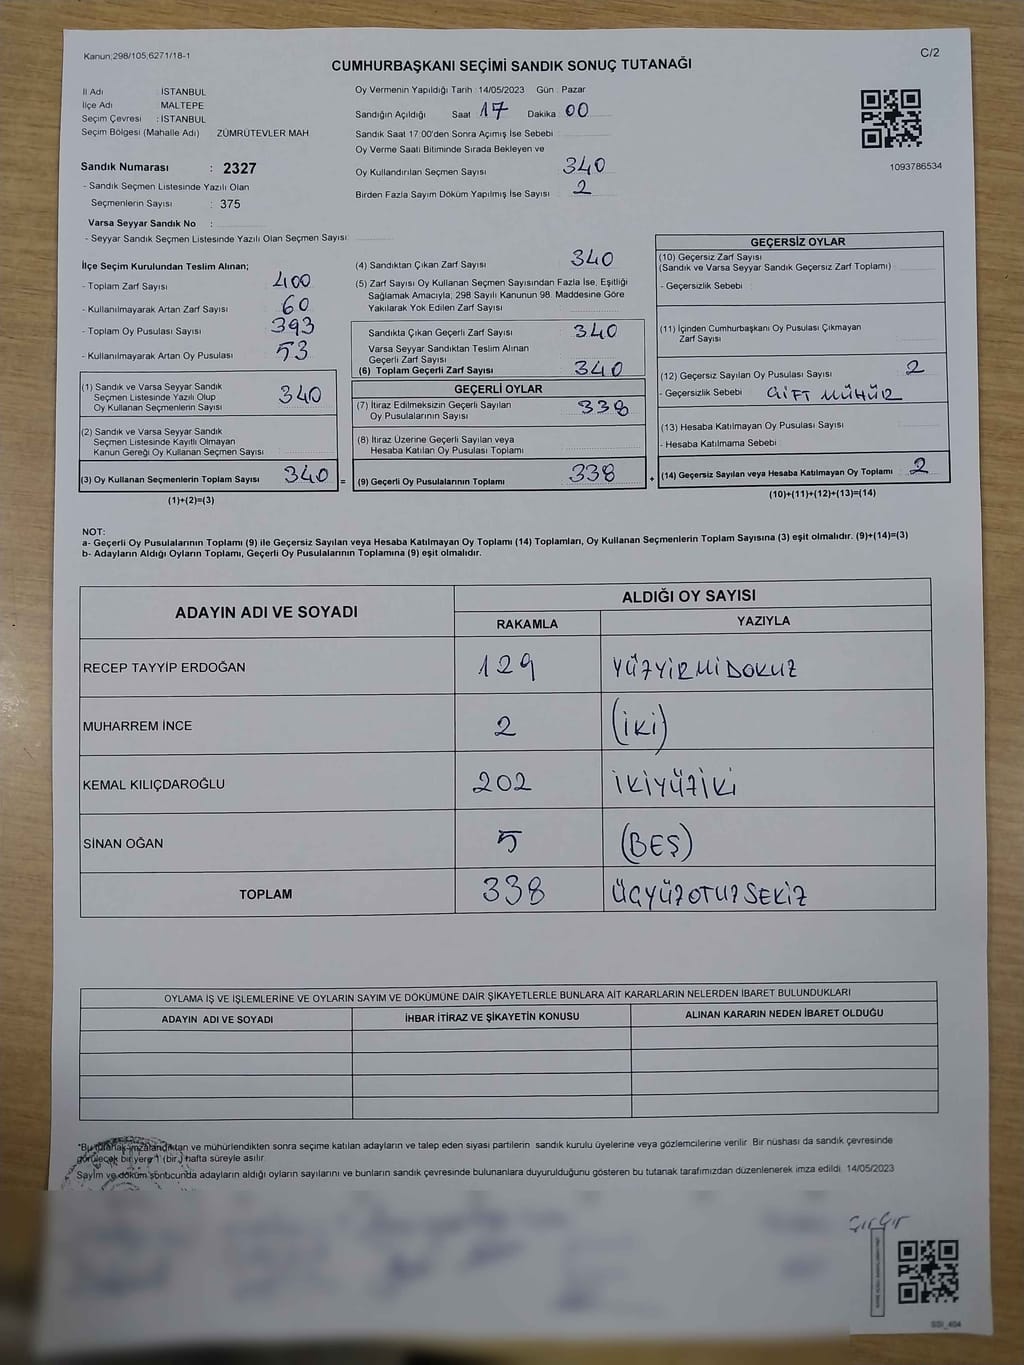 Kanun;298/105;6271/18-1
C/2
CUMHURBAŞKANI SEÇİMİ SANDIK SONUÇ TUTANAĞI
İl Adı : İSTANBUL
İlçe Adı : MALTEPE
Seçim Çevresi : İSTANBUL
Seçim Bölgesi (Mahalle Adı) ZÜMRÜTEVLER MAH
Sandık Numarası : 2327
- Sandık Seçmen Listesinde Yazılı Olan
Seçmenlerin Sayısı : 375
Varsa Seyyar Sandık No :
- Seyyar Sandık Seçmen Listesinde Yazılı Olan Seçmen Sayısı:
Oy Vermenin Yapıldığı Tarih : 14/05/2023 Gün : Pazar
Sandığın Açıldığı Saat 17 Dakika 00
Sandık Saat 17:00'den Sonra Açımış İse Sebebi
Oy Verme Saati Bitiminde Sırada Bekleyen ve
Oy Kullandırılan Seçmen Sayısı 340
Birden Fazla Sayım Döküm Yapılmış İse Sayısı 2
1093786534
İlçe Seçim Kurulundan Teslim Alınan;
- Toplam Zarf Sayısı 400
- Kullanılmayarak Artan Zarf Sayısı 60
- Toplam Oy Pusulası Sayısı 393
- Kullanılmayarak Artan Oy Pusulası 53
(1) Sandık ve Varsa Seyyar Sandık
Seçmen Listesinde Yazılı Olup
Oy Kullanan Seçmenlerin Sayısı 340
(2) Sandık ve Varsa Seyyar Sandık
Seçmen Listesinde Kayıtlı Olmayan
Kanun Gereği Oy Kullanan Seçmen Sayısı
(3) Oy Kullanan Seçmenlerin Toplam Sayısı 340 =
(1)+(2)=(3)
(4) Sandıktan Çıkan Zarf Sayısı 340
(5) Zarf Sayısı Oy Kullanan Seçmen Sayısından Fazla İse, Eşitliği
Sağlamak Amacıyla; 298 Sayılı Kanunun 98. Maddesine Göre
Yakılarak Yok Edilen Zarf Sayısı
Sandıkta Çıkan Geçerli Zarf Sayısı 340
Varsa Seyyar Sandıktan Teslim Alınan
Geçerli Zarf Sayısı
(6) Toplam Geçerli Zarf Sayısı 340
GEÇERLİ OYLAR
(7) İtiraz Edilmeksizin Geçerli Sayılan
Oy Pusulalarının Sayısı 338
(8) İtiraz Üzerine Geçerli Sayılan veya
Hesaba Katılan Oy Pusulası Toplamı
(9) Geçerli Oy Pusulalarının Toplamı 338 +
GEÇERSİZ OYLAR
(10) Geçersiz Zarf Sayısı
(Sandık ve Varsa Seyyar Sandık Geçersiz Zarf Toplamı)
- Geçersizlik Sebebi :
(11) İçinden Cumhurbaşkanı Oy Pusulası Çıkmayan
Zarf Sayısı
(12) Geçersiz Sayılan Oy Pusulası Sayısı 2
- Geçersizlik Sebebi : ÇİFT MÜHÜR
(13) Hesaba Katılmayan Oy Pusulası Sayısı
- Hesaba Katılmama Sebebi :
(14) Geçersiz Sayılan veya Hesaba Katılmayan Oy Toplamı 2
(10)+(11)+(12)+(13)=(14)
NOT:
a- Geçerli Oy Pusulalarının Toplamı (9) ile Geçersiz Sayılan veya Hesaba Katılmayan Oy Toplamı (14) Toplamları, Oy Kullanan Seçmenlerin Toplam Sayısına (3) eşit olmalıdır. (9)+(14)=(3)
b- Adayların Aldığı Oyların Toplamı, Geçerli Oy Pusulalarının Toplamına (9) eşit olmalıdır.
ADAYIN ADI VE SOYADI
ALDIĞI OY SAYISI
RAKAMLA YAZIYLA
RECEP TAYYİP ERDOĞAN 129 YÜZYİRMİDOKUZ
MUHARREM İNCE 2 (İKİ)
KEMAL KILIÇDAROĞLU 202 İKİYÜZİKİ
SİNAN OĞAN 5 (BEŞ)
TOPLAM 338 ÜÇYÜZOTUZSEKİZ
OYLAMA İŞ VE İŞLEMLERİNE VE OYLARIN SAYIM VE DÖKÜMÜNE DAİR ŞİKAYETLERLE BUNLARA AİT KARARLARIN NELERDEN İBARET BULUNDUKLARI
ADAYIN ADI VE SOYADI İHBAR İTİRAZ VE ŞİKAYETİN KONUSU ALINAN KARARIN NEDEN İBARET OLDUĞU
*Bu tutanak imzalandıktan ve mühürlendikten sonra seçime katılan adayların ve talep eden siyasi partilerin sandık kurulu üyelerine veya gözlemcilerine verilir. Bir nüshası da sandık çevresinde
görülecek bir yere 1 (bir) hafta süreyle asılır.
Sayım ve döküm sonucunda adayların aldığı oyların sayılarını ve bunların sandık çevresinde bulunanlara duyurulduğunu gösteren bu tutanak tarafımızdan düzenlenerek imza edildi. 14/05/2023
SSI_404